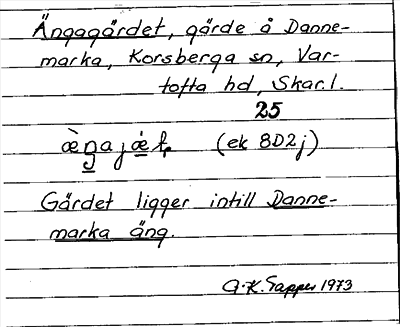 Ängagärdet, gärde å Danne-
marka, Korsberga sn, Var-
tofta hd, Skar.l.
25
(ek 8D2j)
Gärdet ligger intill Danne-
marka äng.
G.K. Sapper 1973